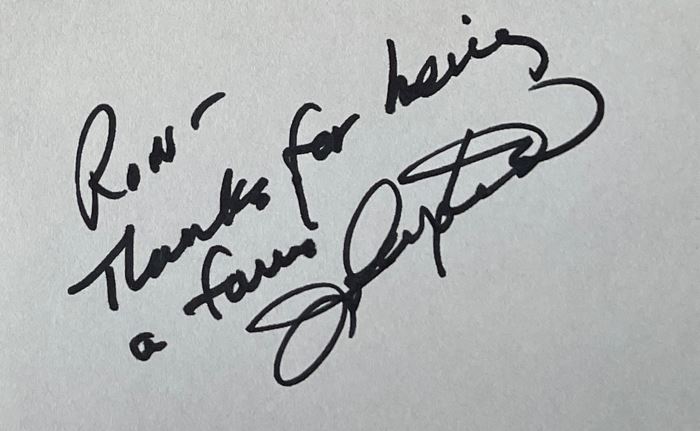 Ron -
Thanks for being
a fan